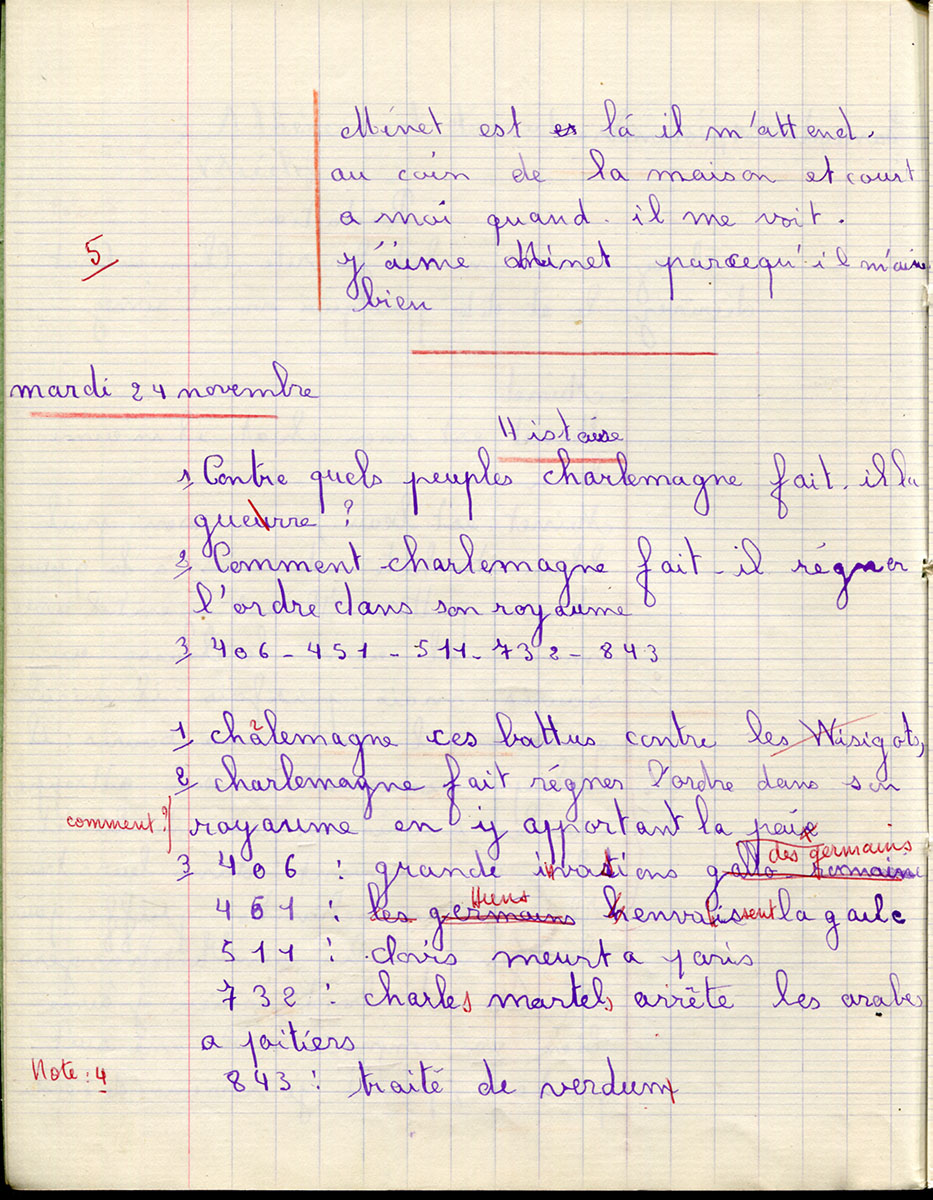 Minet est es là il m'attend.
au coin de la maison et court
a moi quand. il me voit.
5
j'aime Minet parcequ'il m'aime
bien
mardi 24 novembre
Histoire
1 Contre quels peuples charlemagne fait-il la
guerre ?
2 Comment charlemagne fait-il régner
l'ordre dans son royaume
3 406 - 451 - 511 - 732 - 843
1 châlemagne ces battus contre les Wisigots,
2 charlemagne fait régner l'ordre dans son
comment ?
royaume en y apportant la paix
des germains
3 406 : grande invations gallo romaine
Huns
461 : les germains envalissent la gaule
511 : clovis meurt a paris
732 : charles martels arrête les arabes
a poitiers
Note : 4
843 : traité de verdum